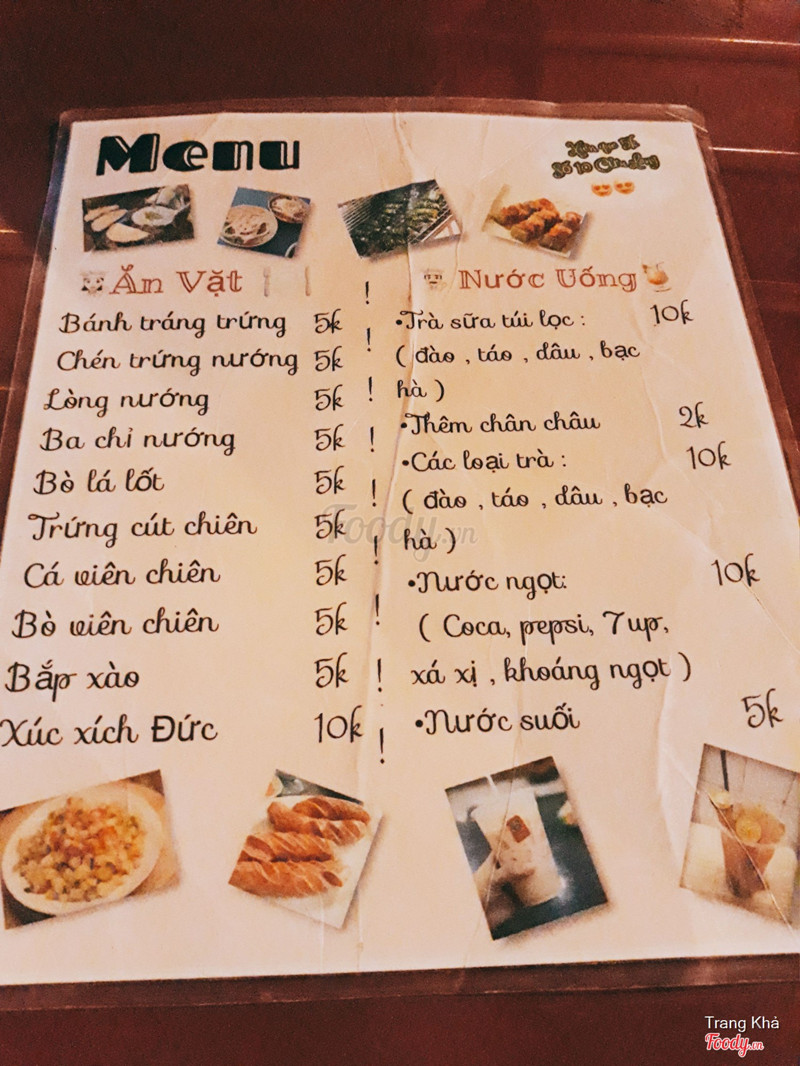 Menu
Số 10 Cửu Long
Ăn Vặt
Bánh tráng trứng 5k
Chén trứng nướng 5k
Lòng nướng 5k
Ba chỉ nướng 5k
Bò lá lốt 5k
Trứng cút chiên 5k
Cá viên chiên 5k
Bò viên chiên 5k
Bắp xào 5k
Xúc xích Đức 10k
Nước Uống
•Trà sữa túi lọc : 10k
( đào , táo , dâu , bạc
hà )
•Thêm chân châu 2k
•Các loại trà : 10k
( đào , táo , dâu , bạc
hà )
•Nước ngọt: 10k
( Coca, pepsi, 7up,
xá xị , khoáng ngọt )
•Nước suối 5k
Foody.vn
Trang Khả
Foody.vn